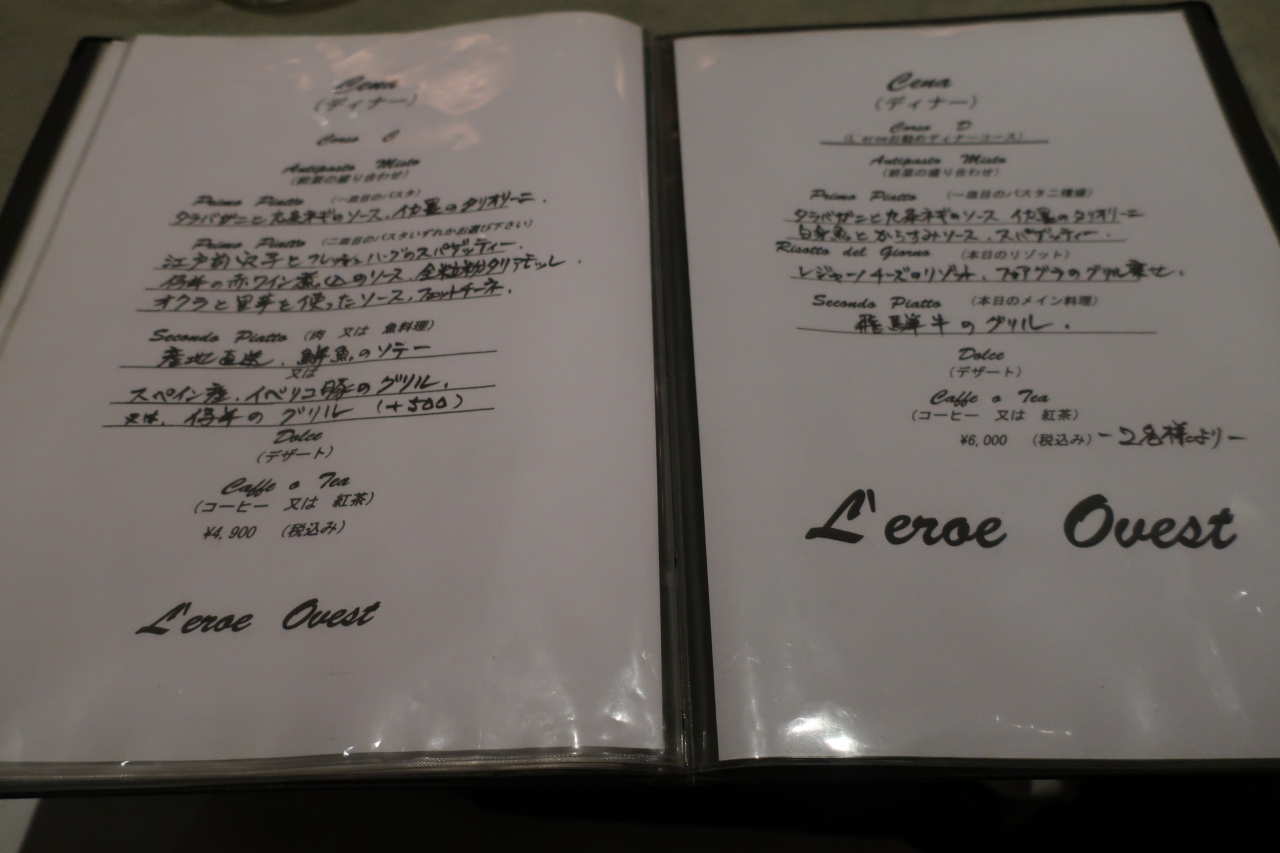 Cena
(ディナー)
Corso C
Antipasto Misto
(前菜の盛り合わせ)
Primo Piatto (一皿目のパスタ)
タラバガニと九条ネギのソース、イカ墨のタリオリーニ.
Primo Piatto (二皿目のパスタいずれかお選び下さい)
江戸前穴子とフレッシュハーブのスパゲッティー.
仔牛の赤ワイン煮込のソース、全粒粉タリアテッレ.
オクラと里芋を使ったソース、フェットチーネ.
Secondo Piatto (肉 又は 魚料理)
産地直送、鮮魚のソテー
又は
スペイン産、イベリコ豚のグリル.
又は、仔牛のグリル (+500)
Dolce
(デザート)
Caffe o Tea
(コーヒー 又は 紅茶)
¥4,900 (税込み)
L'eroe Ovest
Cena
(ディナー)
Corso D
(L'eroeお勧めディナーコース)
Antipasto Misto
(前菜の盛り合わせ)
Primo Piatto (一皿目のパスタ二種盛)
タラバガニと九条ネギのソース イカ墨のタリオリーニ
白身魚とからすみソース、スパゲッティー.
Risotto del Giorno (本日のリゾット)
レジャーノチーズのリゾット、フォアグラのグリル乗せ.
Secondo Piatto (本日のメイン料理)
飛騨牛のグリル.
Dolce
(デザート)
Caffe o Tea
(コーヒー 又は 紅茶)
¥6,000 (税込み) -2名様より-
L'eroe Ovest